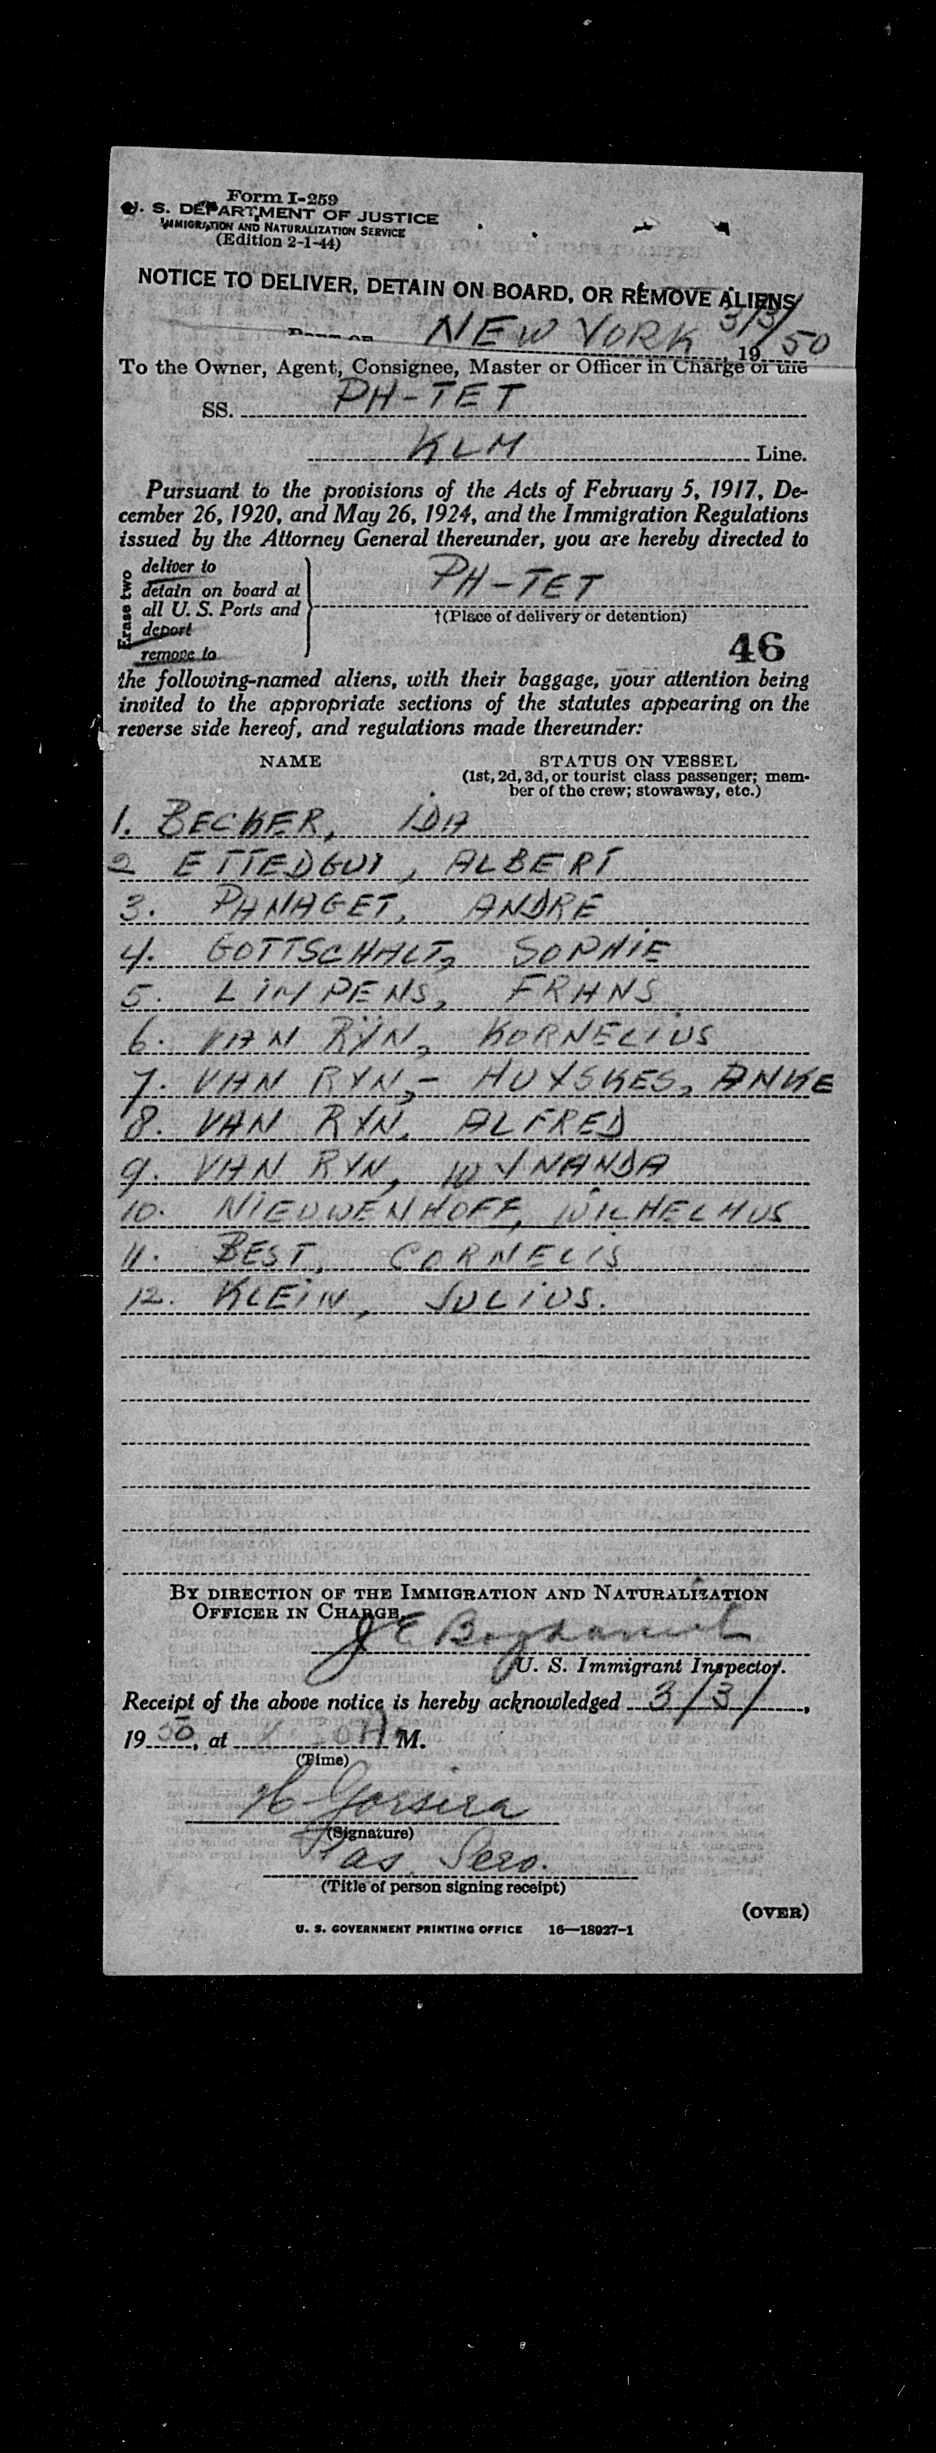 Form I-259
U. S. DEPARTMENT OF JUSTICE
IMMIGRATION AND NATURALIZATION SERVICE
(Edition 2-1-44)
NOTICE TO DELIVER, DETAIN ON BOARD, OR REMOVE ALIENS
NEW YORK 3/3/ 1950
To the Owner, Agent, Consignee, Master or Officer in Charge of the
SS. PH-TET
KLM Line.
Pursuant to the provisions of the Acts of February 5, 1917, De-
cember 26, 1920, and May 26, 1924, and the Immigration Regulations
issued by the Attorney General thereunder, you are hereby directed to
Erase two
deliver to
detain on board at
all U. S. Ports and
deport
remove to
PH-TET
†(Place of delivery or detention)
46
the following-named aliens, with their baggage, your attention being
invited to the appropriate sections of the statutes appearing on the
reverse side hereof, and regulations made thereunder:
NAME STATUS ON VESSEL
(1st, 2d, 3d, or tourist class passenger; mem-
ber of the crew; stowaway, etc.)
1. BECKER, IDA
2 ETTEDGUI, ALBERT
3. PANAGET, ANDRE
4. GOTTSCHALT, SOPHIE
5. LIMPENS, FRANS
6. VAN RYN, KORNELIUS
7. VAN RYN,- HUYSKES, ANKE
8. VAN RYN, ALFRED
9. VAN RYN, WYNANDA
10. NIEUWENHOFF, WILHELMUS
11. BEST, CORNELIS
12. KLEIN, JULIUS.
BY DIRECTION OF THE IMMIGRATION AND NATURALIZATION
OFFICER IN CHARGE.
J E
U. S. Immigrant Inspector.
Receipt of the above notice is hereby acknowledged 3/3/,
1950, at M.
(Time)
H Gorsira
(Signature)
Pas. Serv.
(Title of person signing receipt)
(OVER)
U. S. GOVERNMENT PRINTING OFFICE 16—18927-1